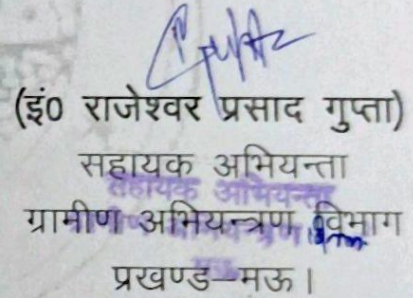 Gupta
(इं0 राजेश्वर प्रसाद गुप्ता)
सहायक अभियन्ता
सहायक अभियन्ता
ग्रामीण अभियन्त्रण विभाग
प्रखण्ड–मऊ।